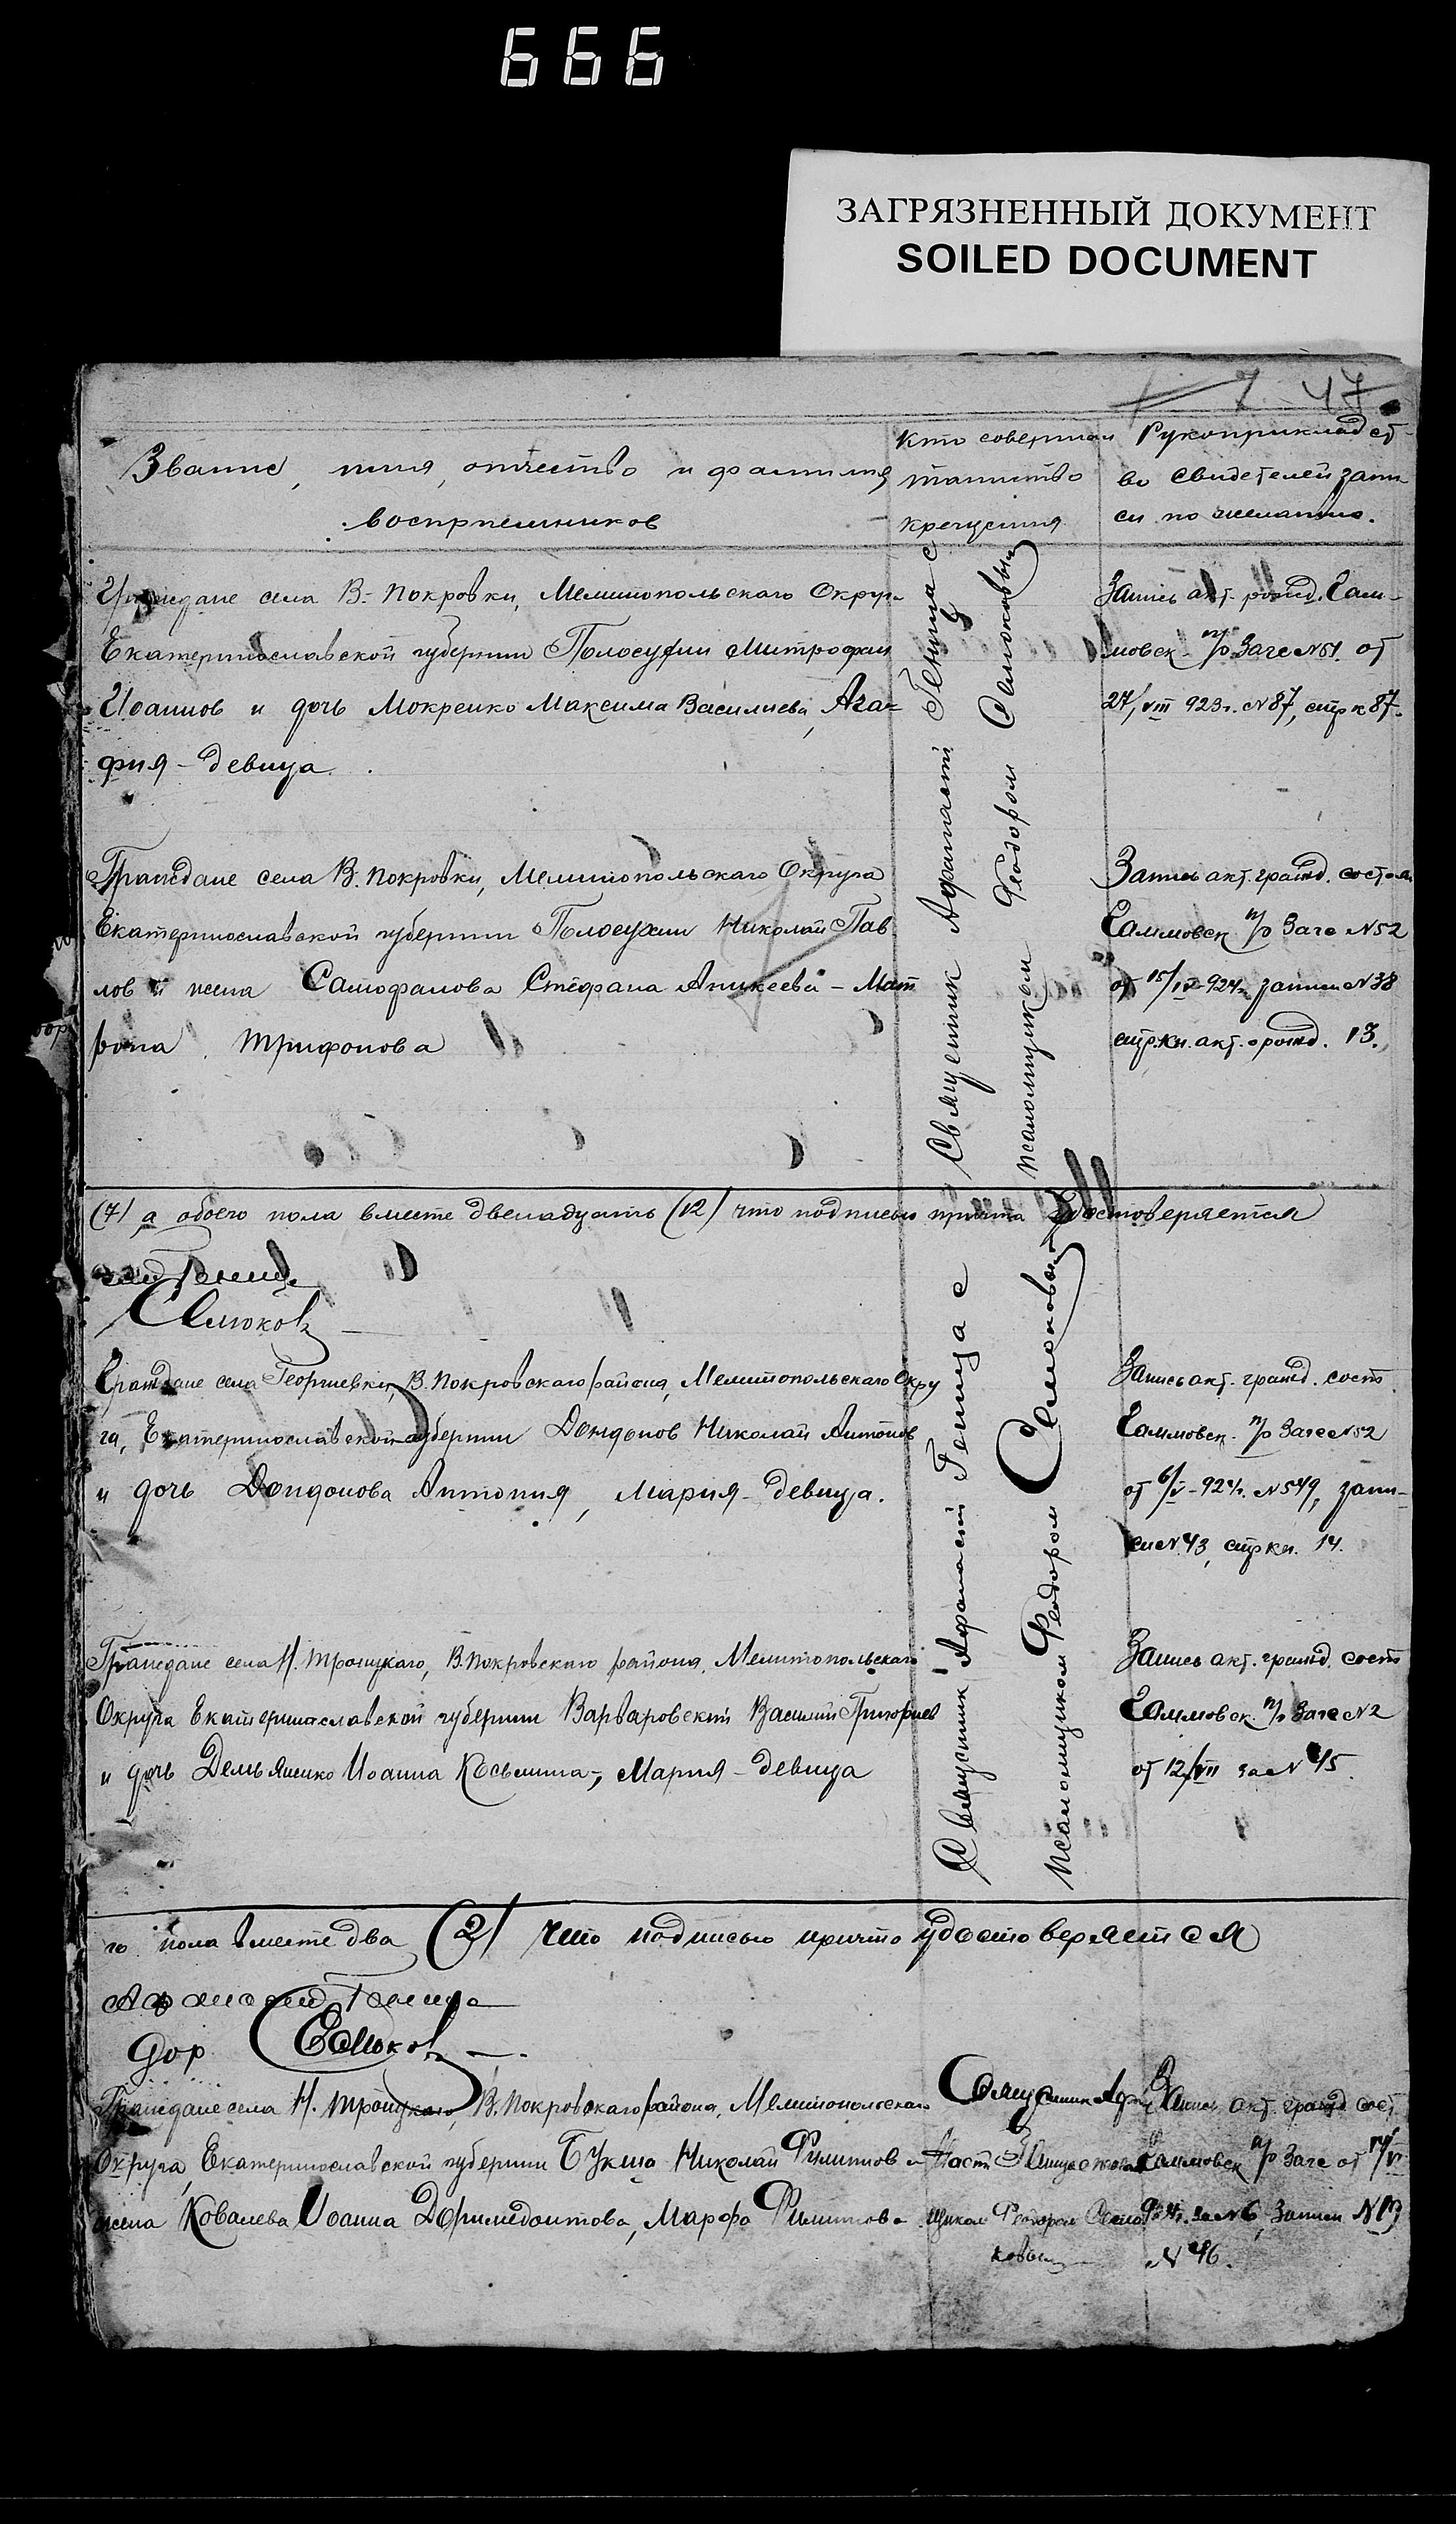 666
ЗАГРЯЗНЕННЫЙ ДОКУМЕНТ
SOILED DOCUMENT
7 47
Звание, имя, отчество и фамилия
восприемников
Кто совершал
таинство
крещения
Рукоприкладст-
во свидетелей запи-
си по желанию.
Граждане села В.-Покровки, Мелитопольскаго Округа
Екатеринославской губернии Полосухин Митрофан
Иоаннов и дочь Мокренко Максима Василиева, Ага-
фия - девица.
Священник Афанасий Геница с
псаломщиком Феодором Самоковым
Запись акт. рожд. Сали-
мовск. п/о Загс №51. от
27/VIII 923г. №87, стр к 87.
Граждане села В. Покровки, Мелитопольскаго Округа
Екатеринославской губернии Полосухин Николай Пав
лов и жена Самофалова Стефана Аникеева - Мат
рона Трифонова
Запись акт. гражд. состоя
Салимовск п/о Загс №52
от 15/IV-924г. записи №38
стр.кн. акт. о рожд. 13.
(7) а обоего пола вместе двенадцать (12) что подписью причта удостоверяется
Геница
Самоков
Граждане села Георгиевки, В. Покровскаго района, Мелитопольскаго Окру
га, Екатеринославской губернии Дондонов Николай Антонов
и дочь Дондонова Антония, Мария - девица.
Священник Афанасий Геница с
псаломщиком Феодором Самоковым
Запись акт. гражд. сост
Салимовск. п/о Загс №52
от 6/V-924г. №549, запи-
си №43, стр кн. 14.
Граждане села Н. Троицкаго, В. Покровскаго района, Мелитопольскаго
Округа Екатеринославской губернии Варваровский Василий Григориев
и дочь Демьяненко Иоанна Косьмина -, Мария - девица
Запись акт. гражд. сост
Салимовск. п/о Загс №2
от 12/VII за №45.
го пола вместе два (2) что подписью причта удостоверяется
Афанасий Геница
дор Самоков
Граждане села Н. Троицкаго, В. Покровскаго района, Мелитопольскаго
Округа, Екатеринославской губернии Букша Николай Филиппов и
жена Ковалева Иоанна Доримедонтова, Марфа Филиппова
Священник Афа
насий Геница с
щиком Феодором Само
ковым
Запись акт. гражд сост
Салимовск п/о Загс от 14/VI
924г. за №6, записи №
№46.